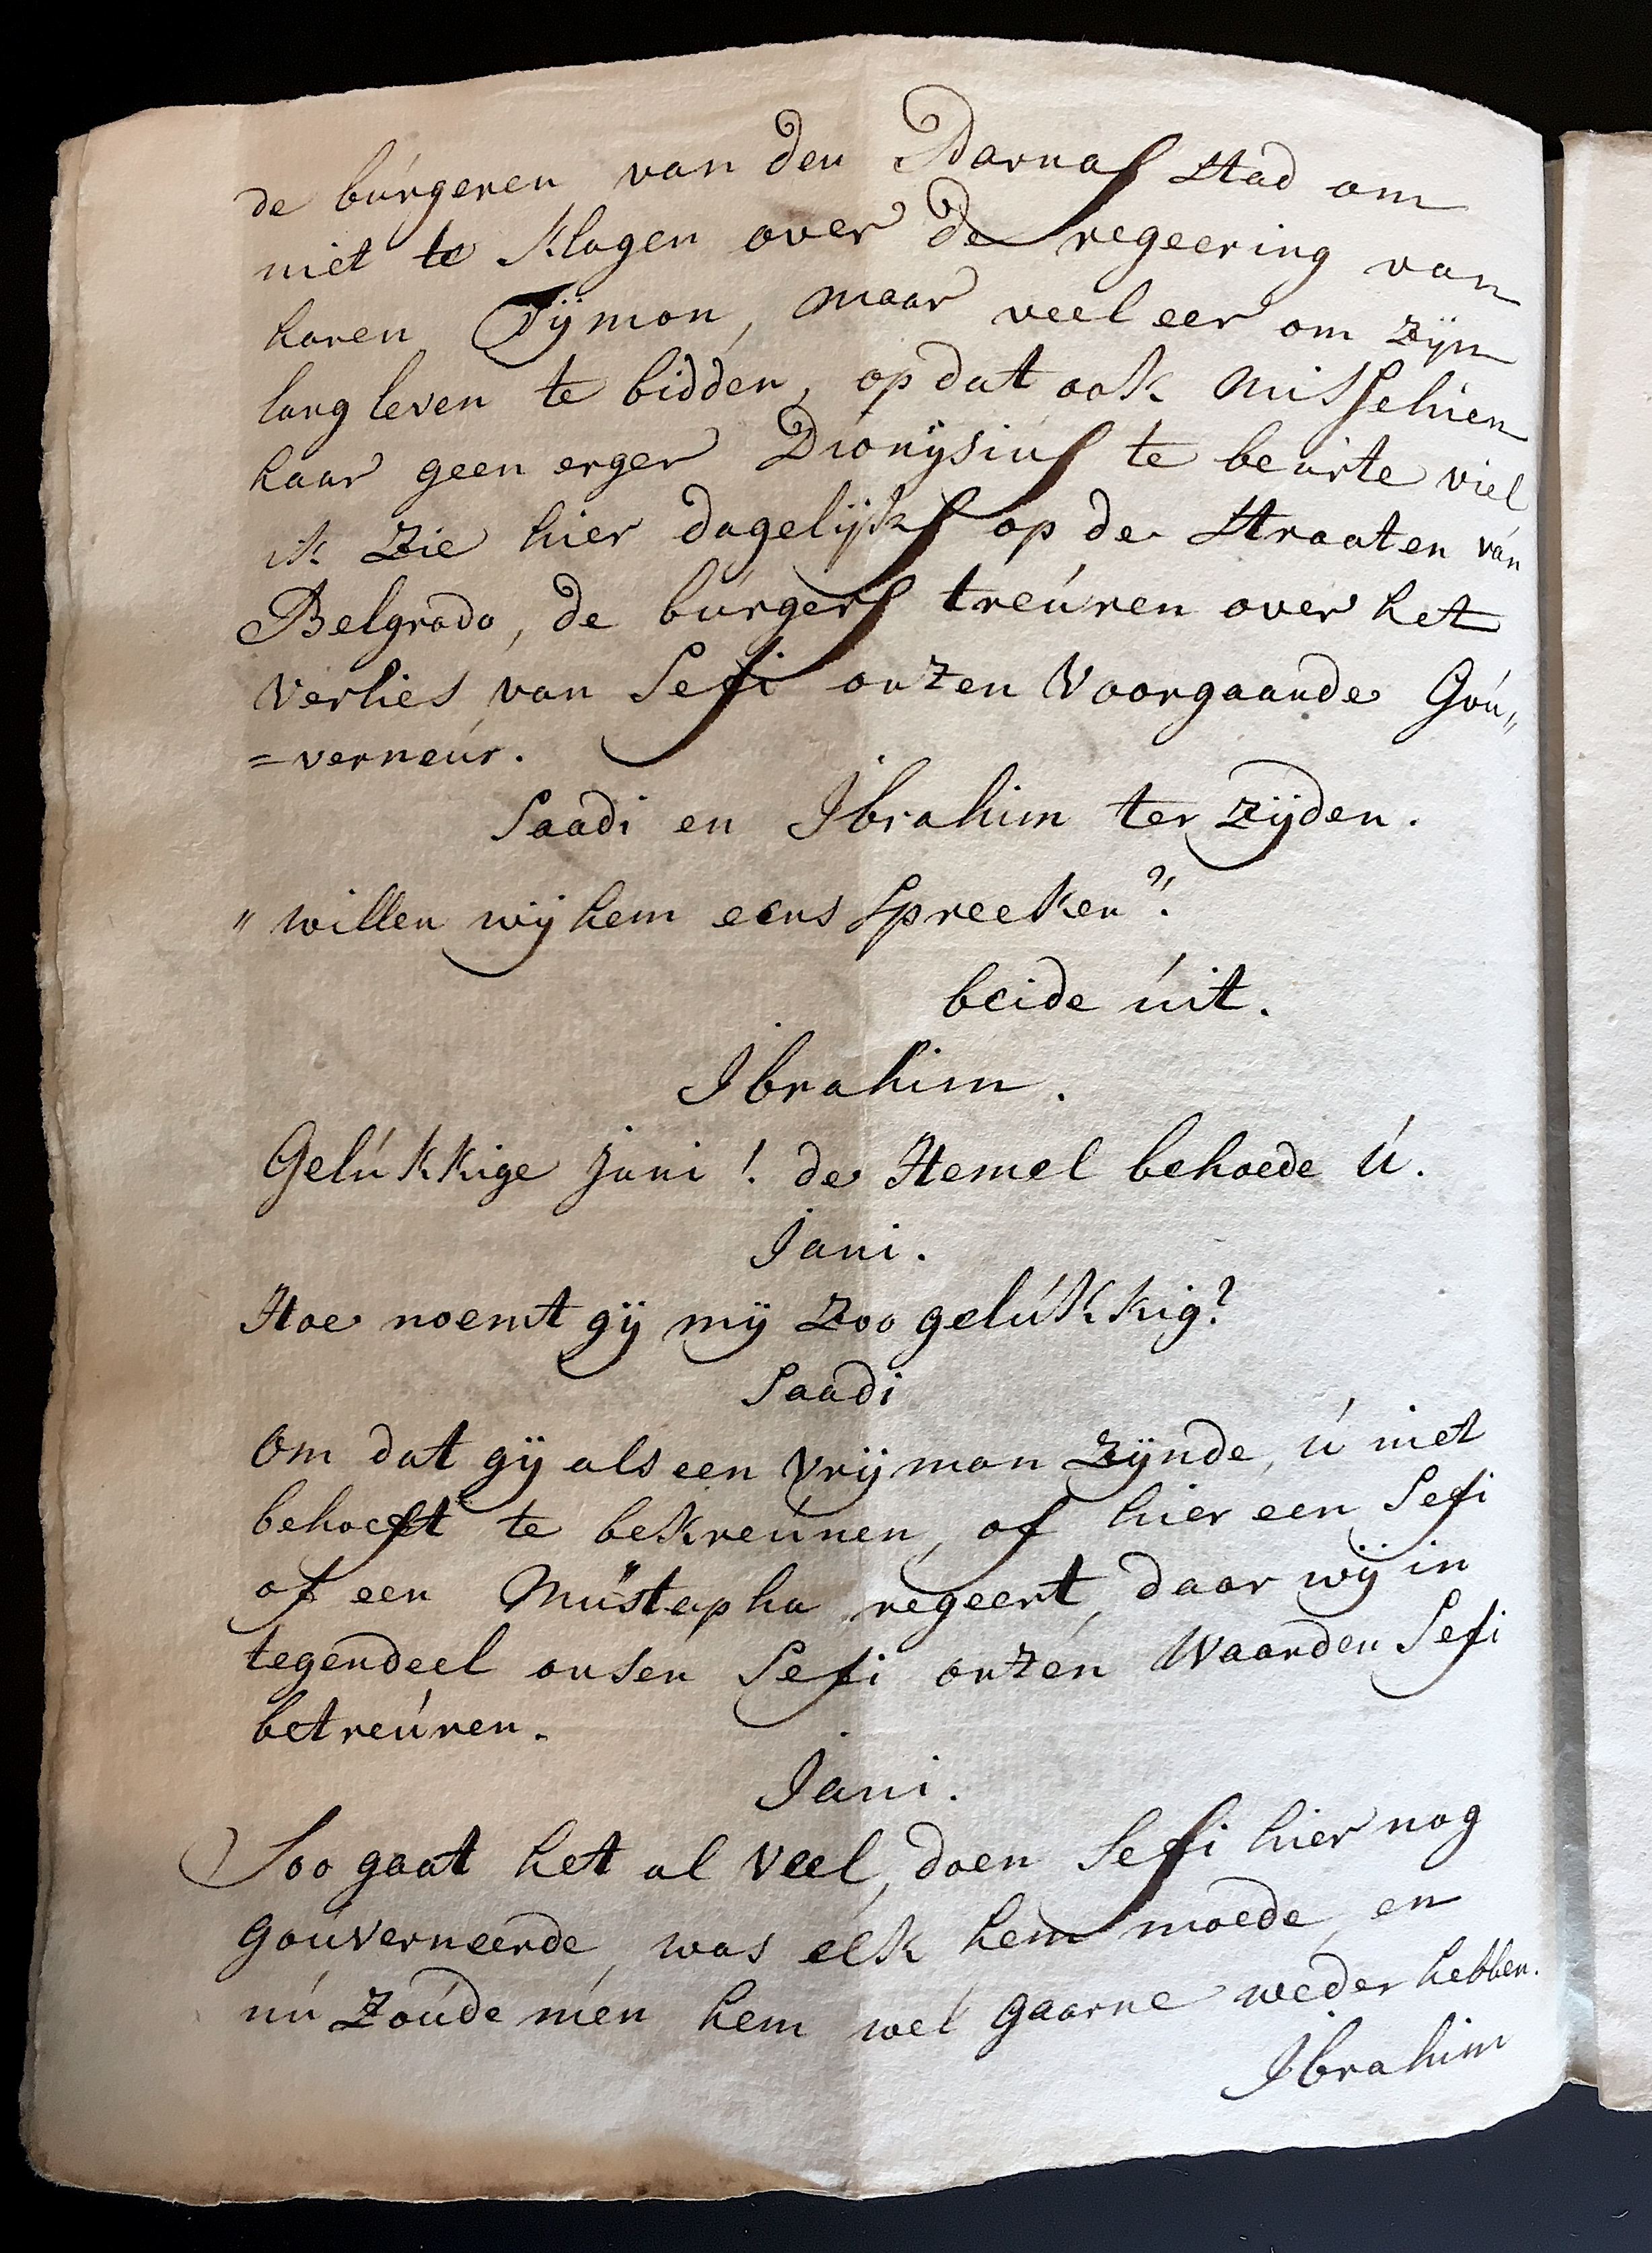 de búrgeren van den Parnas stad om
niet te klagen over de regeering van
haren Tÿmon, maar veel eer om zÿn
lang leven te bidden, op dat ook misschien
haar geen erger Dionÿsius te beúrte viel
ik zie hier dagelijks op de straaten van
Belgrado, de búrgers treúren over het
verlies van Sefi onzen Voorgaande Goú„
=verneúr.
Saadi en Ibrahim ter zÿden.
„ willen wÿ hem eens spreeken?"
beide úit.
Ibrahim.
Gelúkkige jani! de Hemel behoede ú.
Jani.
Hoe noemt gÿ mÿ zoo gelúkkig?
Saadi
Om dat gÿ als een vrÿ man zÿnde, ú niet
behoeft te bekreúnen, of hier een Sefi
of een Mústapha regeert, daar wÿ in
tegendeel onsen Sefi onzen Waarden Sefi
betreúren.
Jani.
Soo gaat het al veel, doen Sefi hier nog
goúverneerde, was elk hem moede, en
nú zoúde men hem wel gaarne weder hebben.
Ibrahim